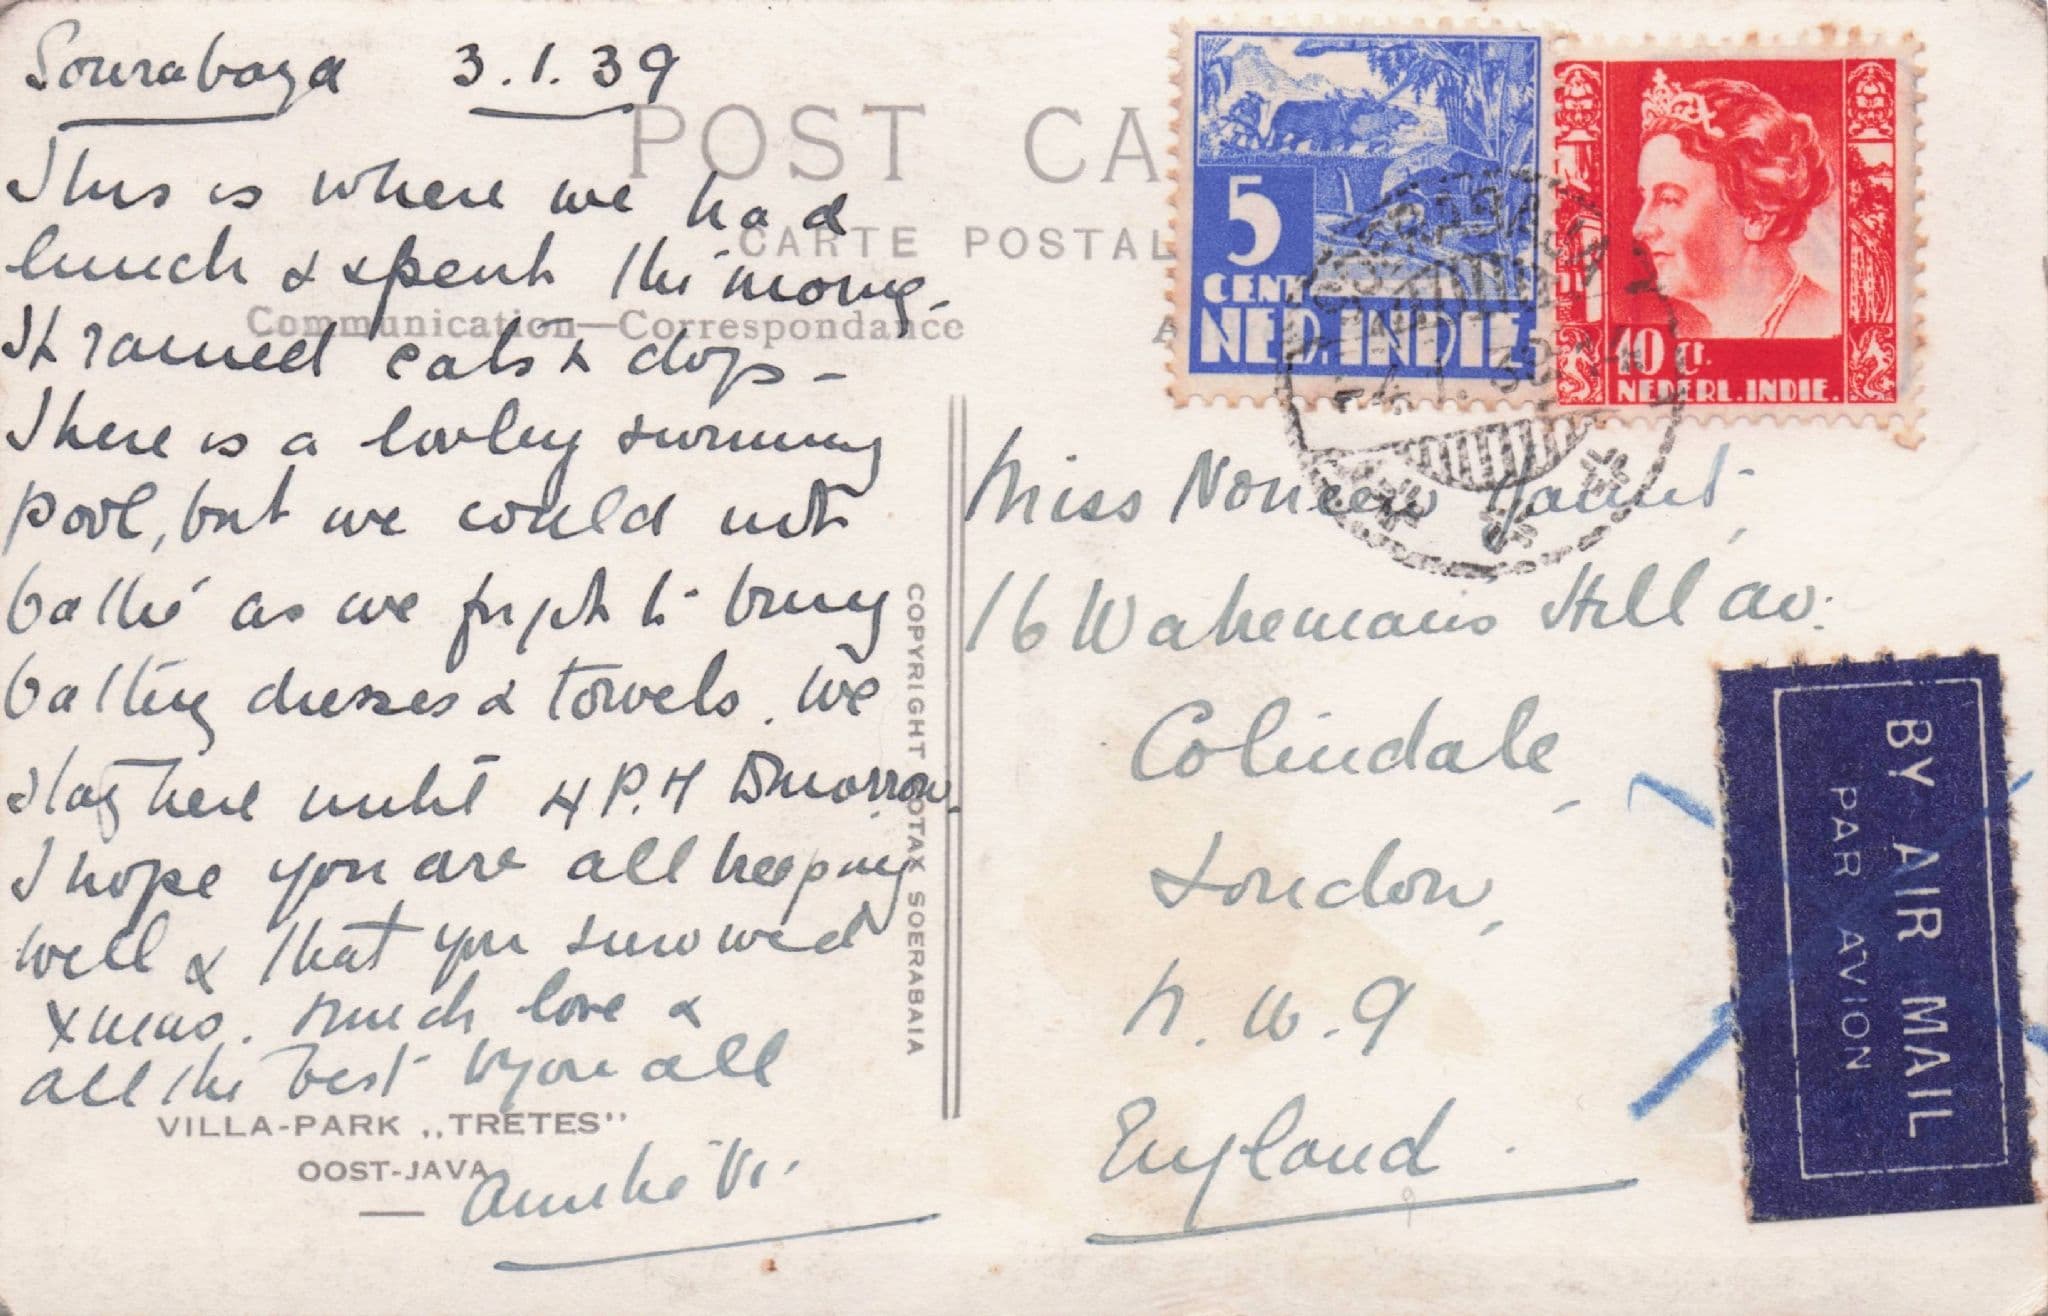 Sourabaya 3.1.39
This is where we had
lunch & spent the morng.
It rained cats & dogs -
There is a lovley swiming
pool, but we could not
bathe as we forgot to bring
bathing dresses & towels. We
stay here until 4 P.M Tomorrow.
I hope you are all keeping
well & that you survived
xmas. Much love &
all the best to you all
Auntie Vi.
VILLA-PARK ,,TRETES"
OOST-JAVA
POST CA
CARTE POSTAL
Communication—Correspondance
A
COPYRIGHT FOTAX SOERABAIA
5
CENT
NED. INDIE
40 CT.
NEDERL. INDIE.
Miss Noreen
16 Wakemans Hill av.
Colindale,
London,
N.W.9
England.
BY AIR MAIL
PAR AVION